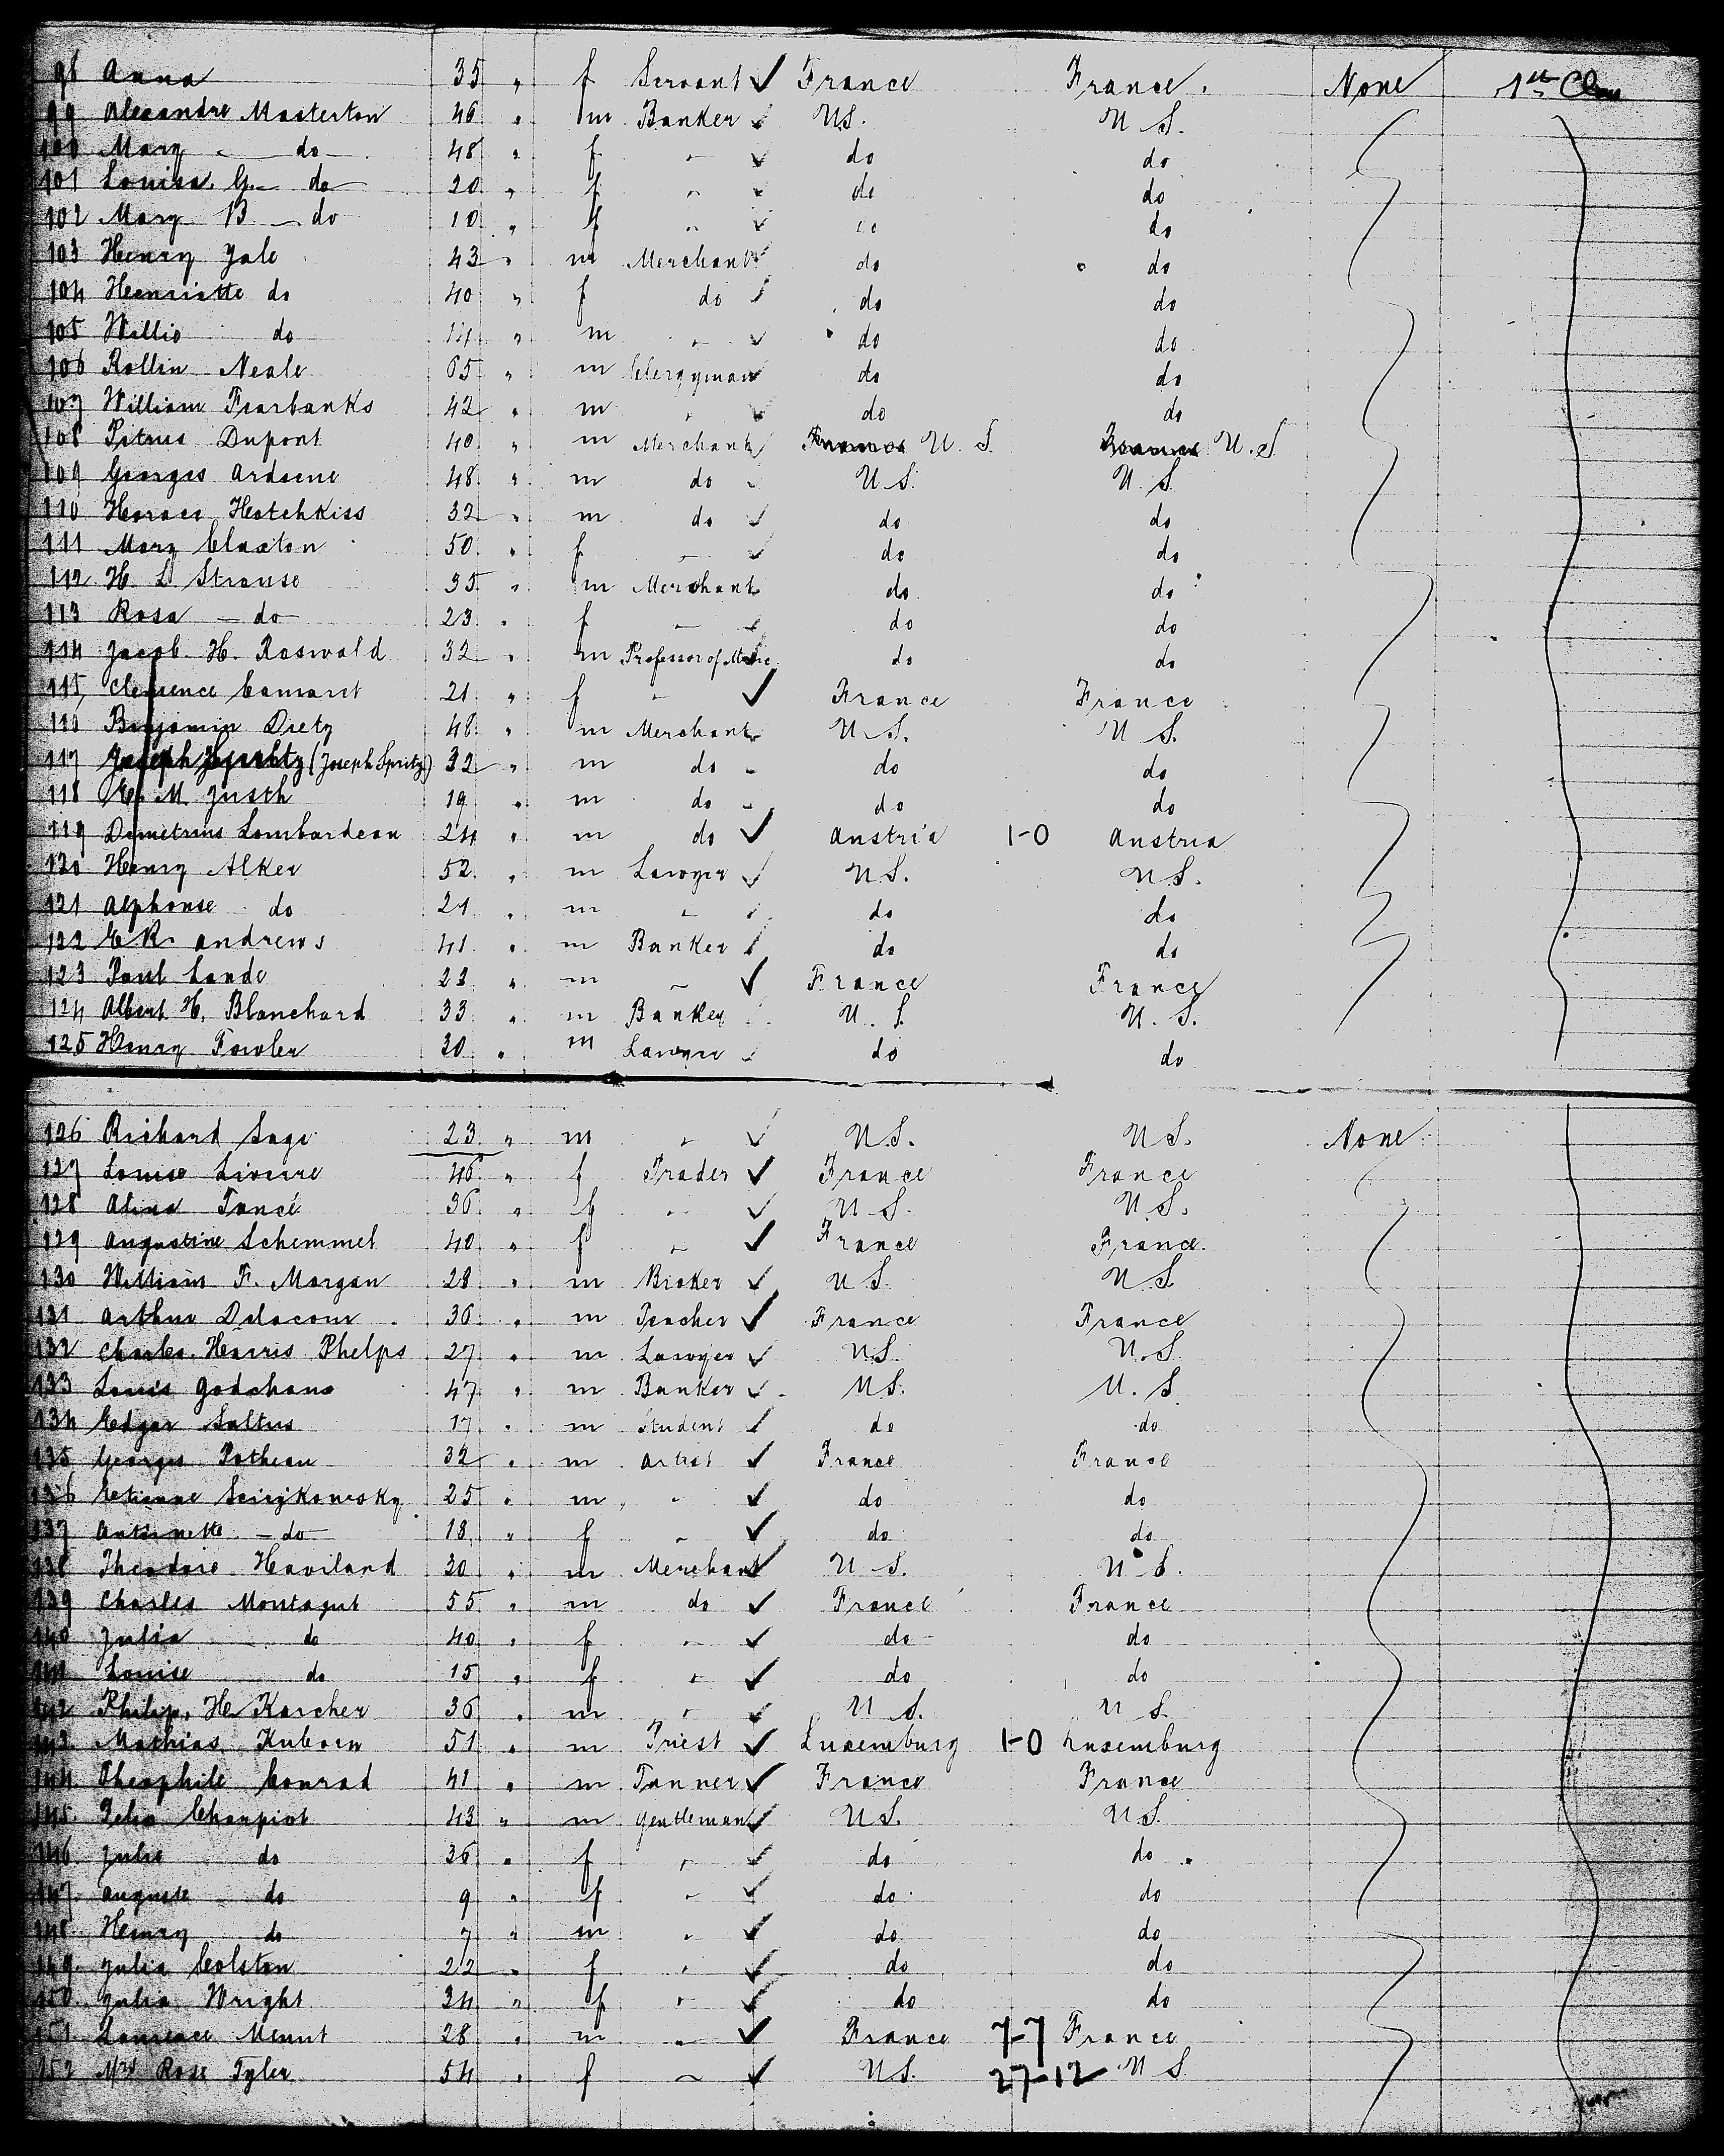 98 Anna 35 " f Servant ✓ France France. None 1st Class
99 Alexandre Masterton 46 " m Banker ✓ U.S. U S.
100 Mary - do - 48 " f " ✓ do do
101 Louisa G. - do 20 " f " ✓ do do
102 Mary B. - do 10 " f " ✓ do do
103 Henry Yale 43 " m Merchant ✓ do do
104 Henriette do 40 " f do ✓ do do
105 Willie do 14 " m " ✓ do do
106 Rollin Neale 65 " m Clergyman ✓ do do
107 William Frarbanks 42 " m " ✓ do do
108 Petrus Dupont 40 " m Merchant France U. S. France U. S
109 Georges Ardoene 48 " m do U S. U. S.
110 Horace Hotchkiss 32 " m do ✓ do do
111 Mary Claxton 50 " f " ✓ do do
112 H. L. Strouse 35 " m Merchant do do
113 Rosa - do - 23 " f " do do
114 Jacob H. Roswald 32 " m Professor of Music do do
115 Clemence Camaret 21 " f " ✓ France France
116 Benjamin Dietz 48 " m Merchant U. S. U S.
117 (Joseph Spritz) 32 " m do do do
118 E. M. Justh 19 " m do do do
119 Demetrius Lombardeon 24 " m do ✓ Austria 1-0 Austria
120 Henry Alker 52 " m Lawyer ✓ U.S. U.S.
121 Alphonse do 21 " m " do do
122 E R. Andrews 41 " m Banker do do
123 Paul Lande 23 " m " ✓ France France
124 Albert H. Blanchard 33 " m Banker U. S. U. S.
125 Henry Fowler 30 " m Lawyer ✓ do do
126 Richard Sage 23 " m " ✓ U.S. U S. None
127 Louise Liviere 46 " f Trader ✓ France France
128 Alina Tancé 36 " f " ✓ U S. U S.
129 Augustine Schemmel 40 " f " ✓ France France.
130 William F. Morgan 28 " m Broker ✓ U S. U S
131 Arthur Delacour 36 " m Teacher ✓ France France
132 Charles Harris Phelps 27 " m Lawyer ✓ U.S. U.S.
133 Louis Godchaux 47 " m Banker ✓ U S. U. S.
134 Edgar Saltus 17 " m Student ✓ do do
135 Georges Potheau 32 " m Artist ✓ France France
136 Etienne 25 " m " ✓ do do
137 Antoinette - do - 18 " f " ✓ do do
138 Theodore Haviland 30 " m Merchant ✓ U S. U S.
139 Charles Montagut 55 " m do ✓ France France
140 Julia do 40 " f " ✓ do do
141 Louise do 15 " f " ✓ do do
142 Philip H. Karcher 36 " m " ✓ U S. U S.
143 Mathias Kuborn 51 " m Priest ✓ Luxemburg 1-0 Luxemburg
144 Theophile Conrad 41 " m Tanner ✓ France France
145 Felix Champiot 43 " m Gentleman ✓ U S. U.S.
146 Julie do 36 " f " ✓ do do
147 Auguste do 9 " f " ✓ do do
148 Henry do 7 " m " ✓ do do
149 Julia Colston 22 " f " ✓ do do
150 Julia Wright 34 " f " ✓ do do
151 Laurence Menut 28 " m " ✓ France 7-7 France
152 Mrs Rose Tyler 54 " f " ✓ U S. 27-12 U S